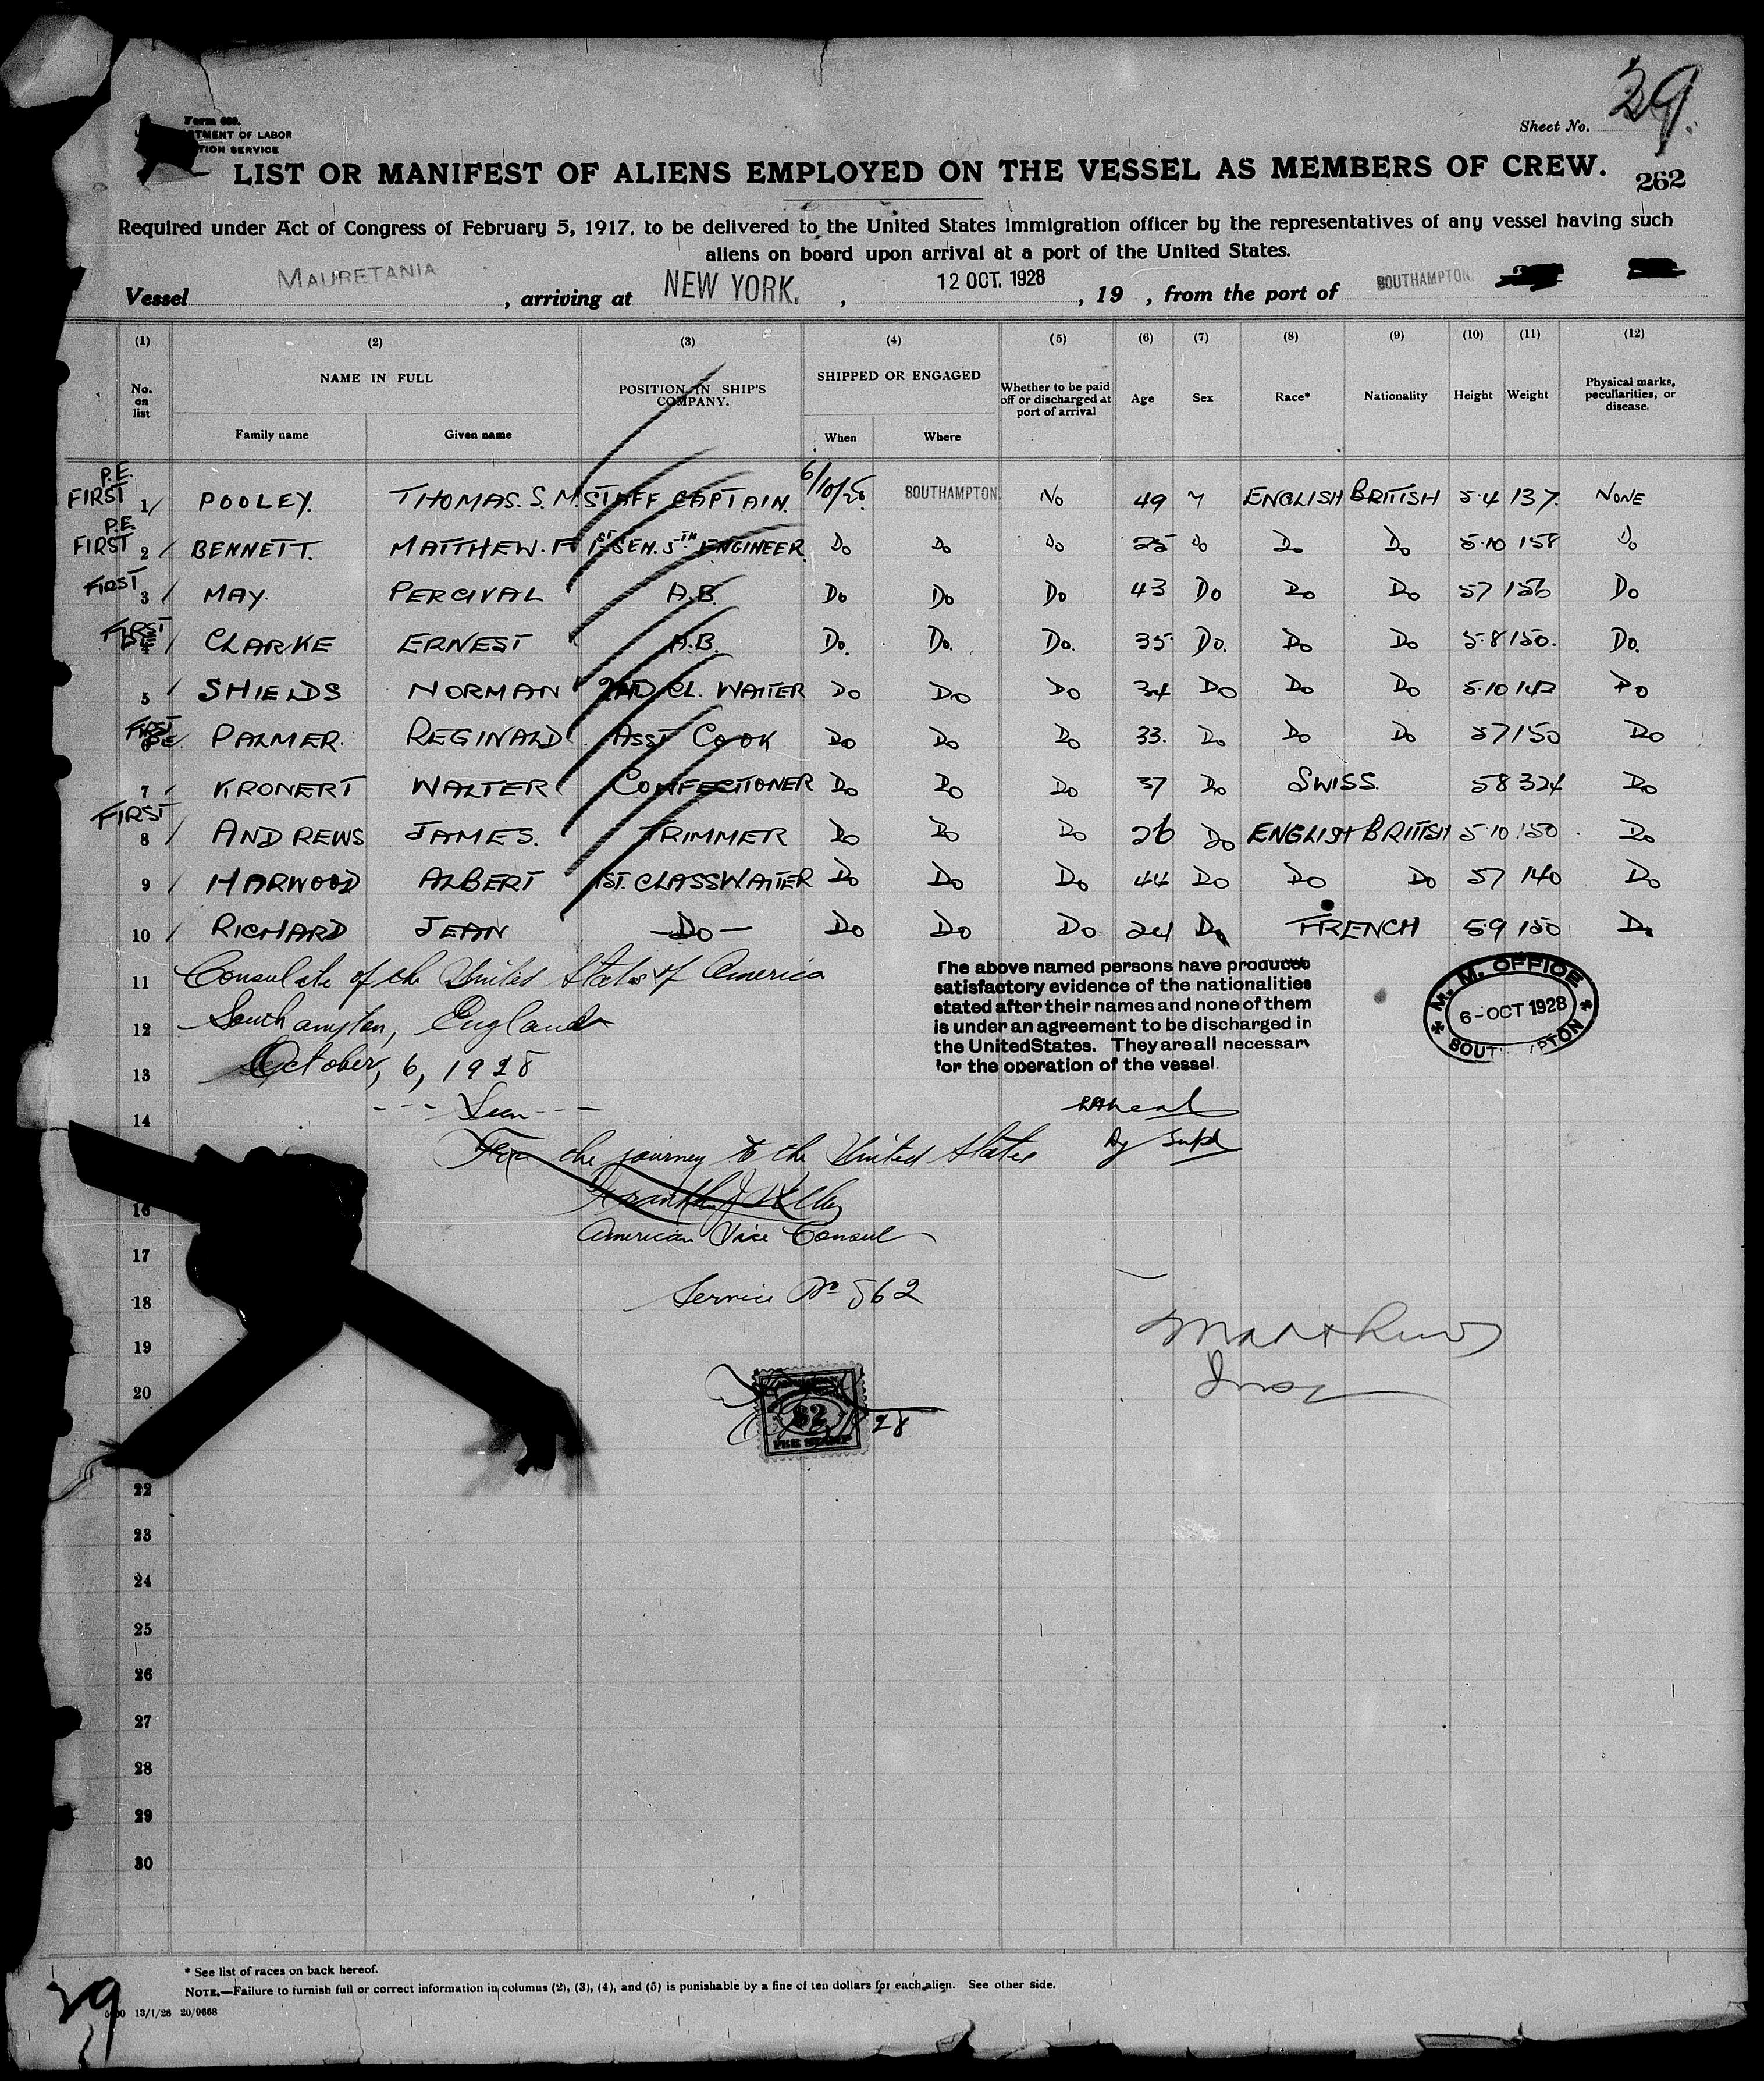 Form 680.
TMENT OF LABOR
TION SERVICE
Sheet No. 29.
LIST OR MANIFEST OF ALIENS EMPLOYED ON THE VESSEL AS MEMBERS OF CREW. 262
Required under Act of Congress of February 5, 1917, to be delivered to the United States immigration officer by the representatives of any vessel having such
aliens on board upon arrival at a port of the United States.
Vessel MAURETANIA, arriving at NEW YORK, 12 OCT. 1928, 19 , from the port of SOUTHAMPTON.
(1) (2) (3) (4) (5) (6) (7) (8) (9) (10) (11) (12)
No. on list NAME IN FULL POSITION IN SHIP'S COMPANY. SHIPPED OR ENGAGED Whether to be paid off or discharged at port of arrival Age Sex Race* Nationality Height Weight Physical marks, peculiarities, or disease.
Family name Given name When Where
P.E. FIRST 1 POOLEY. THOMAS. S. M. STAFF CAPTAIN. 6/10/28. SOUTHAMPTON. No 49 M ENGLISH BRITISH 5.4 137. NONE
P.E. FIRST 2 BENNETT. MATTHEW. F 1ST SEN. 5TH ENGINEER Do Do Do 25 Do Do Do 5.10 158 Do
FIRST 3 MAY. PERCIVAL A.B. Do Do Do 43 Do Do Do 57 156 Do
FIRST PE 4 CLARKE ERNEST A.B. Do. Do. Do. 35 Do. Do Do 5.8 150. Do.
5 SHIELDS NORMAN 2ND CL. WAITER Do Do Do 34 Do Do Do 5.10 142 Do
FIRST PE PALMER. REGINALD. ASST COOK Do Do Do 33. Do Do Do 57 150 Do
7 KRONERT WALTER CONFECTIONER Do Do Do 37 Do SWISS. 58 324 Do
FIRST 8 ANDREWS JAMES. TRIMMER Do Do Do 26 Do ENGLISH BRITISH 5.10 150 Do
9 HARWOOD ALBERT 1ST. CLASS WAITER Do Do Do 44 Do Do Do 57 140 Do
10 RICHARD JEAN —Do— Do Do Do 24 Do FRENCH 59 150 Do
11 Consulate of the United States of America
12 Southampton, England
13 October, 6, 1928
The above named persons have produced
satisfactory evidence of the nationalities
stated after their names and none of them
is under an agreement to be discharged in
the United States. They are all necessary
for the operation of the vessel.
M. M. OFFICE
6-OCT 1928
SOUTHAMPTON
14 --- Seen ---
For the journey to the United States
Dy Supt
16
American Vice Consul
17
18 Service No 562
19 Matthews
Insp
20
$2
FEE STAMP
28
22
23
24
25
26
27
28
29
30
* See list of races on back hereof.
NOTE.—Failure to furnish full or correct information in columns (2), (3), (4), and (5) is punishable by a fine of ten dollars for each alien. See other side.
29
13/1/28 20/9668